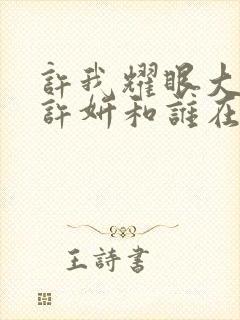 許我耀眼大
許妍和誰在
王詩書